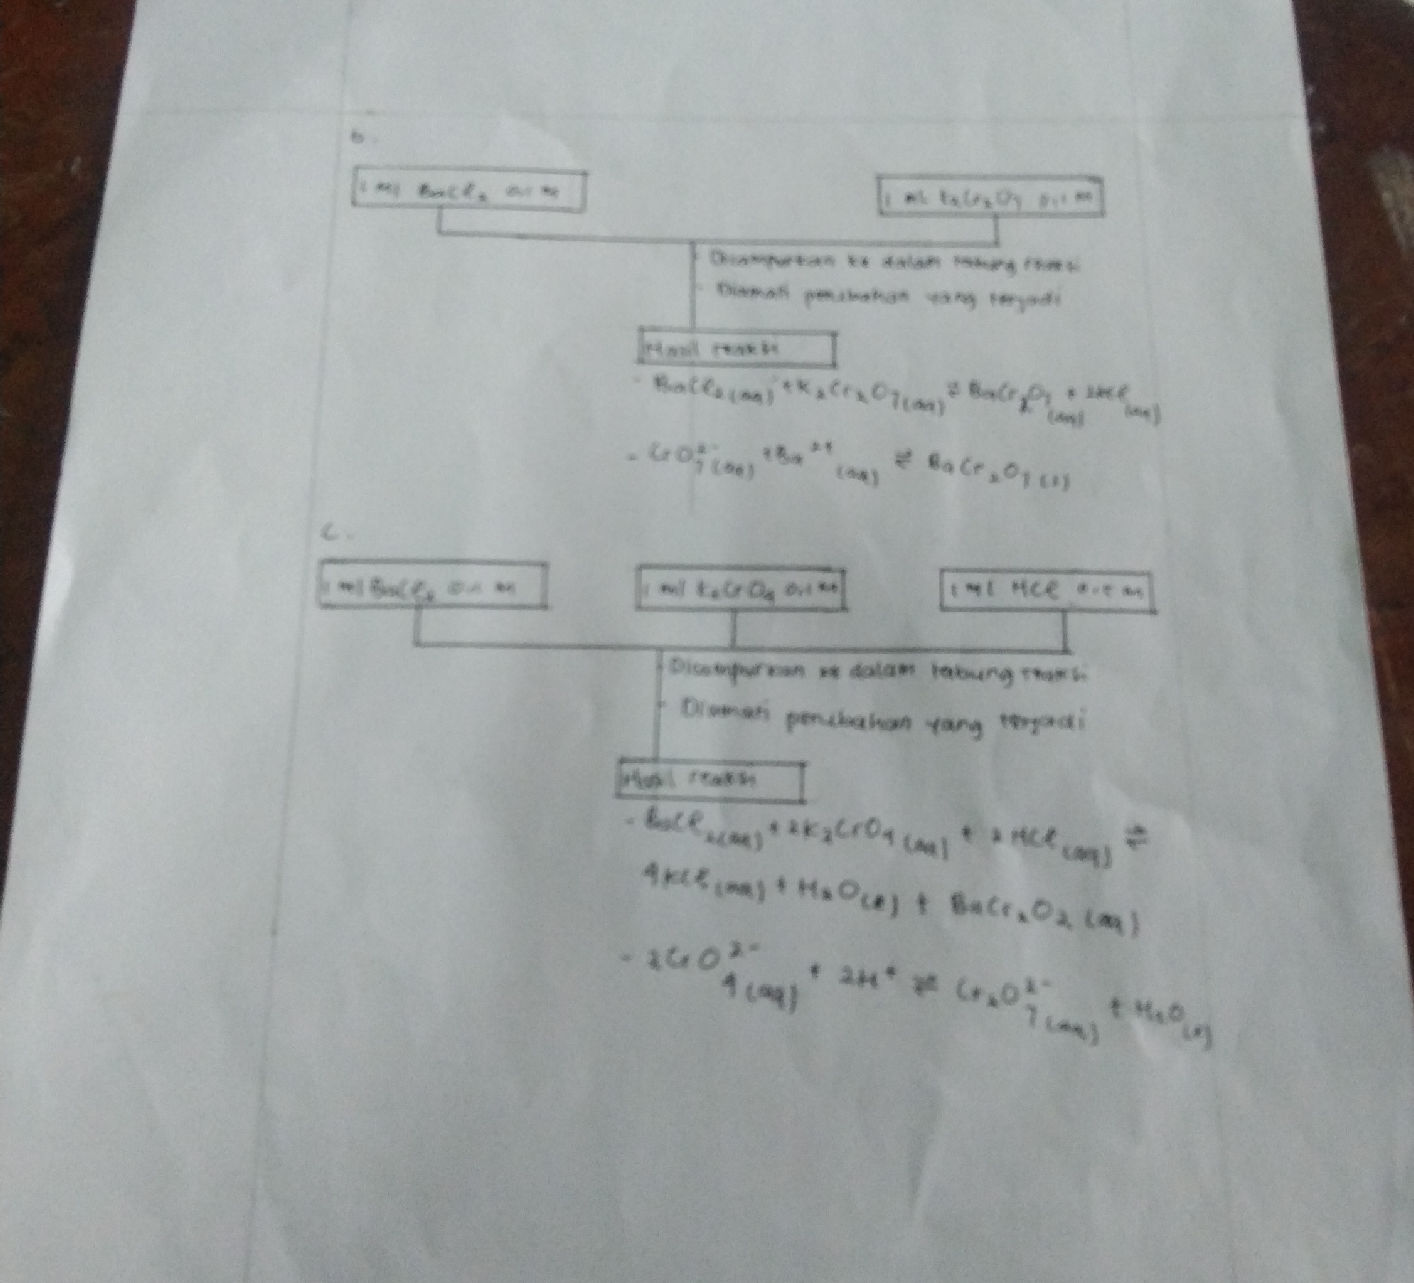 b.
1 ml BaCl₂ 0,1 M
1 ml K₂Cr₂O₇ 0,1 M
- Dicampurkan ke dalam tabung reaksi
- Diamati perubahan yang terjadi
Hasil reaksi
- BaCl₂(aq) + K₂Cr₂O₇(aq) ⇌ BaCr₂O₇(aq) + 2KCl(aq)
- CrO₇²⁻(aq) + Ba²⁺(aq) ⇌ BaCr₂O₇(s)
c.
1 ml BaCl₂ 0,1 M
1 ml K₂CrO₄ 0,1 M
1 ml HCl M
- Dicampurkan ke dalam tabung reaksi
- Diamati perubahan yang terjadi
Hasil reaksi
- BaCl₂(aq) + 2K₂CrO₄(aq) + 2HCl(aq) ⇌
4KCl(aq) + H₂O(l) + BaCr₂O₂(aq)
- 2CrO₄²⁻(aq) + 2H⁺ ⇌ Cr₂O₇²⁻(aq) + H₂O(l)